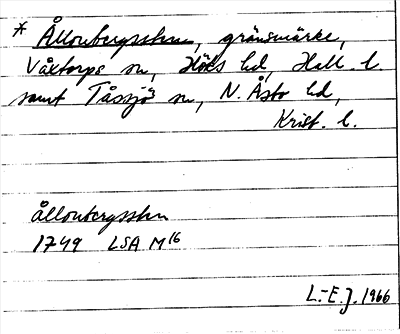 * Ållonbergssten, gränsmärke,
Våxtorps sn, Höks hd, Hall. l.
samt Tåssjö sn, N. Åsbo hd,
Krist. l.
ållonbergssten
1749 LSA M16
L.-E. J. 1966